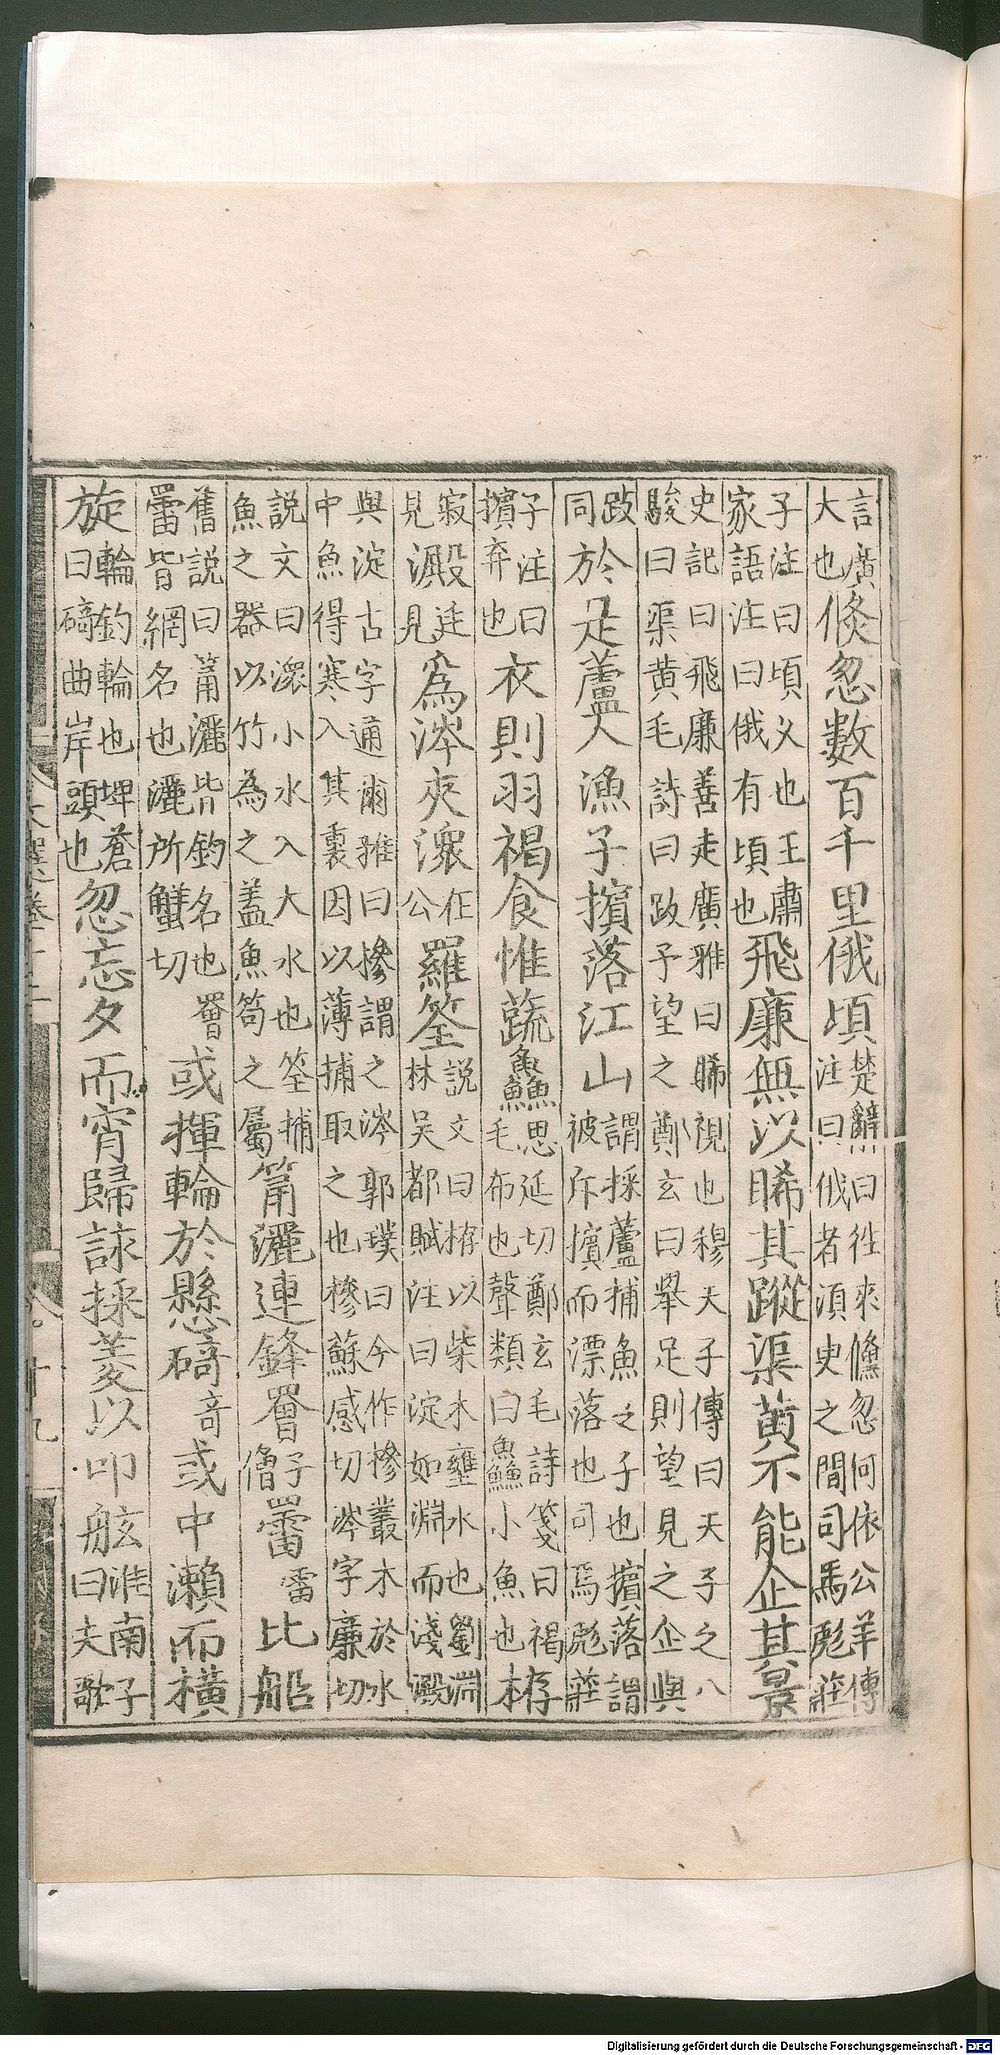 言廣大也倏忽數百千里俄頃楚辭曰往來儵忽何依公羊傳注曰俄者須臾之間司馬彪莊
子注曰頃乂也王肅家語注曰俄有頃也飛廉無以睎其蹤渠黃不能企其景
史記曰飛廉善走廣雅曰睎視也穆天子傳曰天子之八駿曰渠黃毛詩曰跂予望之鄭玄曰舉足則望見之企與
跂同於是蘆人漁子擯落江山謂採蘆捕魚之子也擯落謂被斥擯而漂落也司馬彪莊
子注曰擯弃也衣則羽褐食惟蔬鱻思延切鄭玄毛詩箋曰褐毛布也聲類曰鱻小魚也栫
寂見澱廷見為涔夾潨在公羅筌説文曰栫以柴木壅水也劉淵林吳都賦注曰淀如淵而淺澱
與淀古字通爾雅曰槮謂之涔郭璞曰今作槮叢木於水中魚得寒入其裏因以薄捕取之也槮蘇感切涔字廉切
説文曰潨小水入大水也筌捕魚之器以竹為之蓋魚笱之屬筩灑連鋒罾子僧䍣雷比船
舊説曰筩灑皆釣名也罾䍣皆網名也灑所蟹切或揮輪於懸碕奇或中瀨而橫
旋輪釣輪也埤蒼曰碕曲岸頭也忽忘夕而宵歸詠採菱以叩舷淮南子曰夫歌
Digitalisierung gefördert durch die Deutsche Forschungsgemeinschaft - DFG